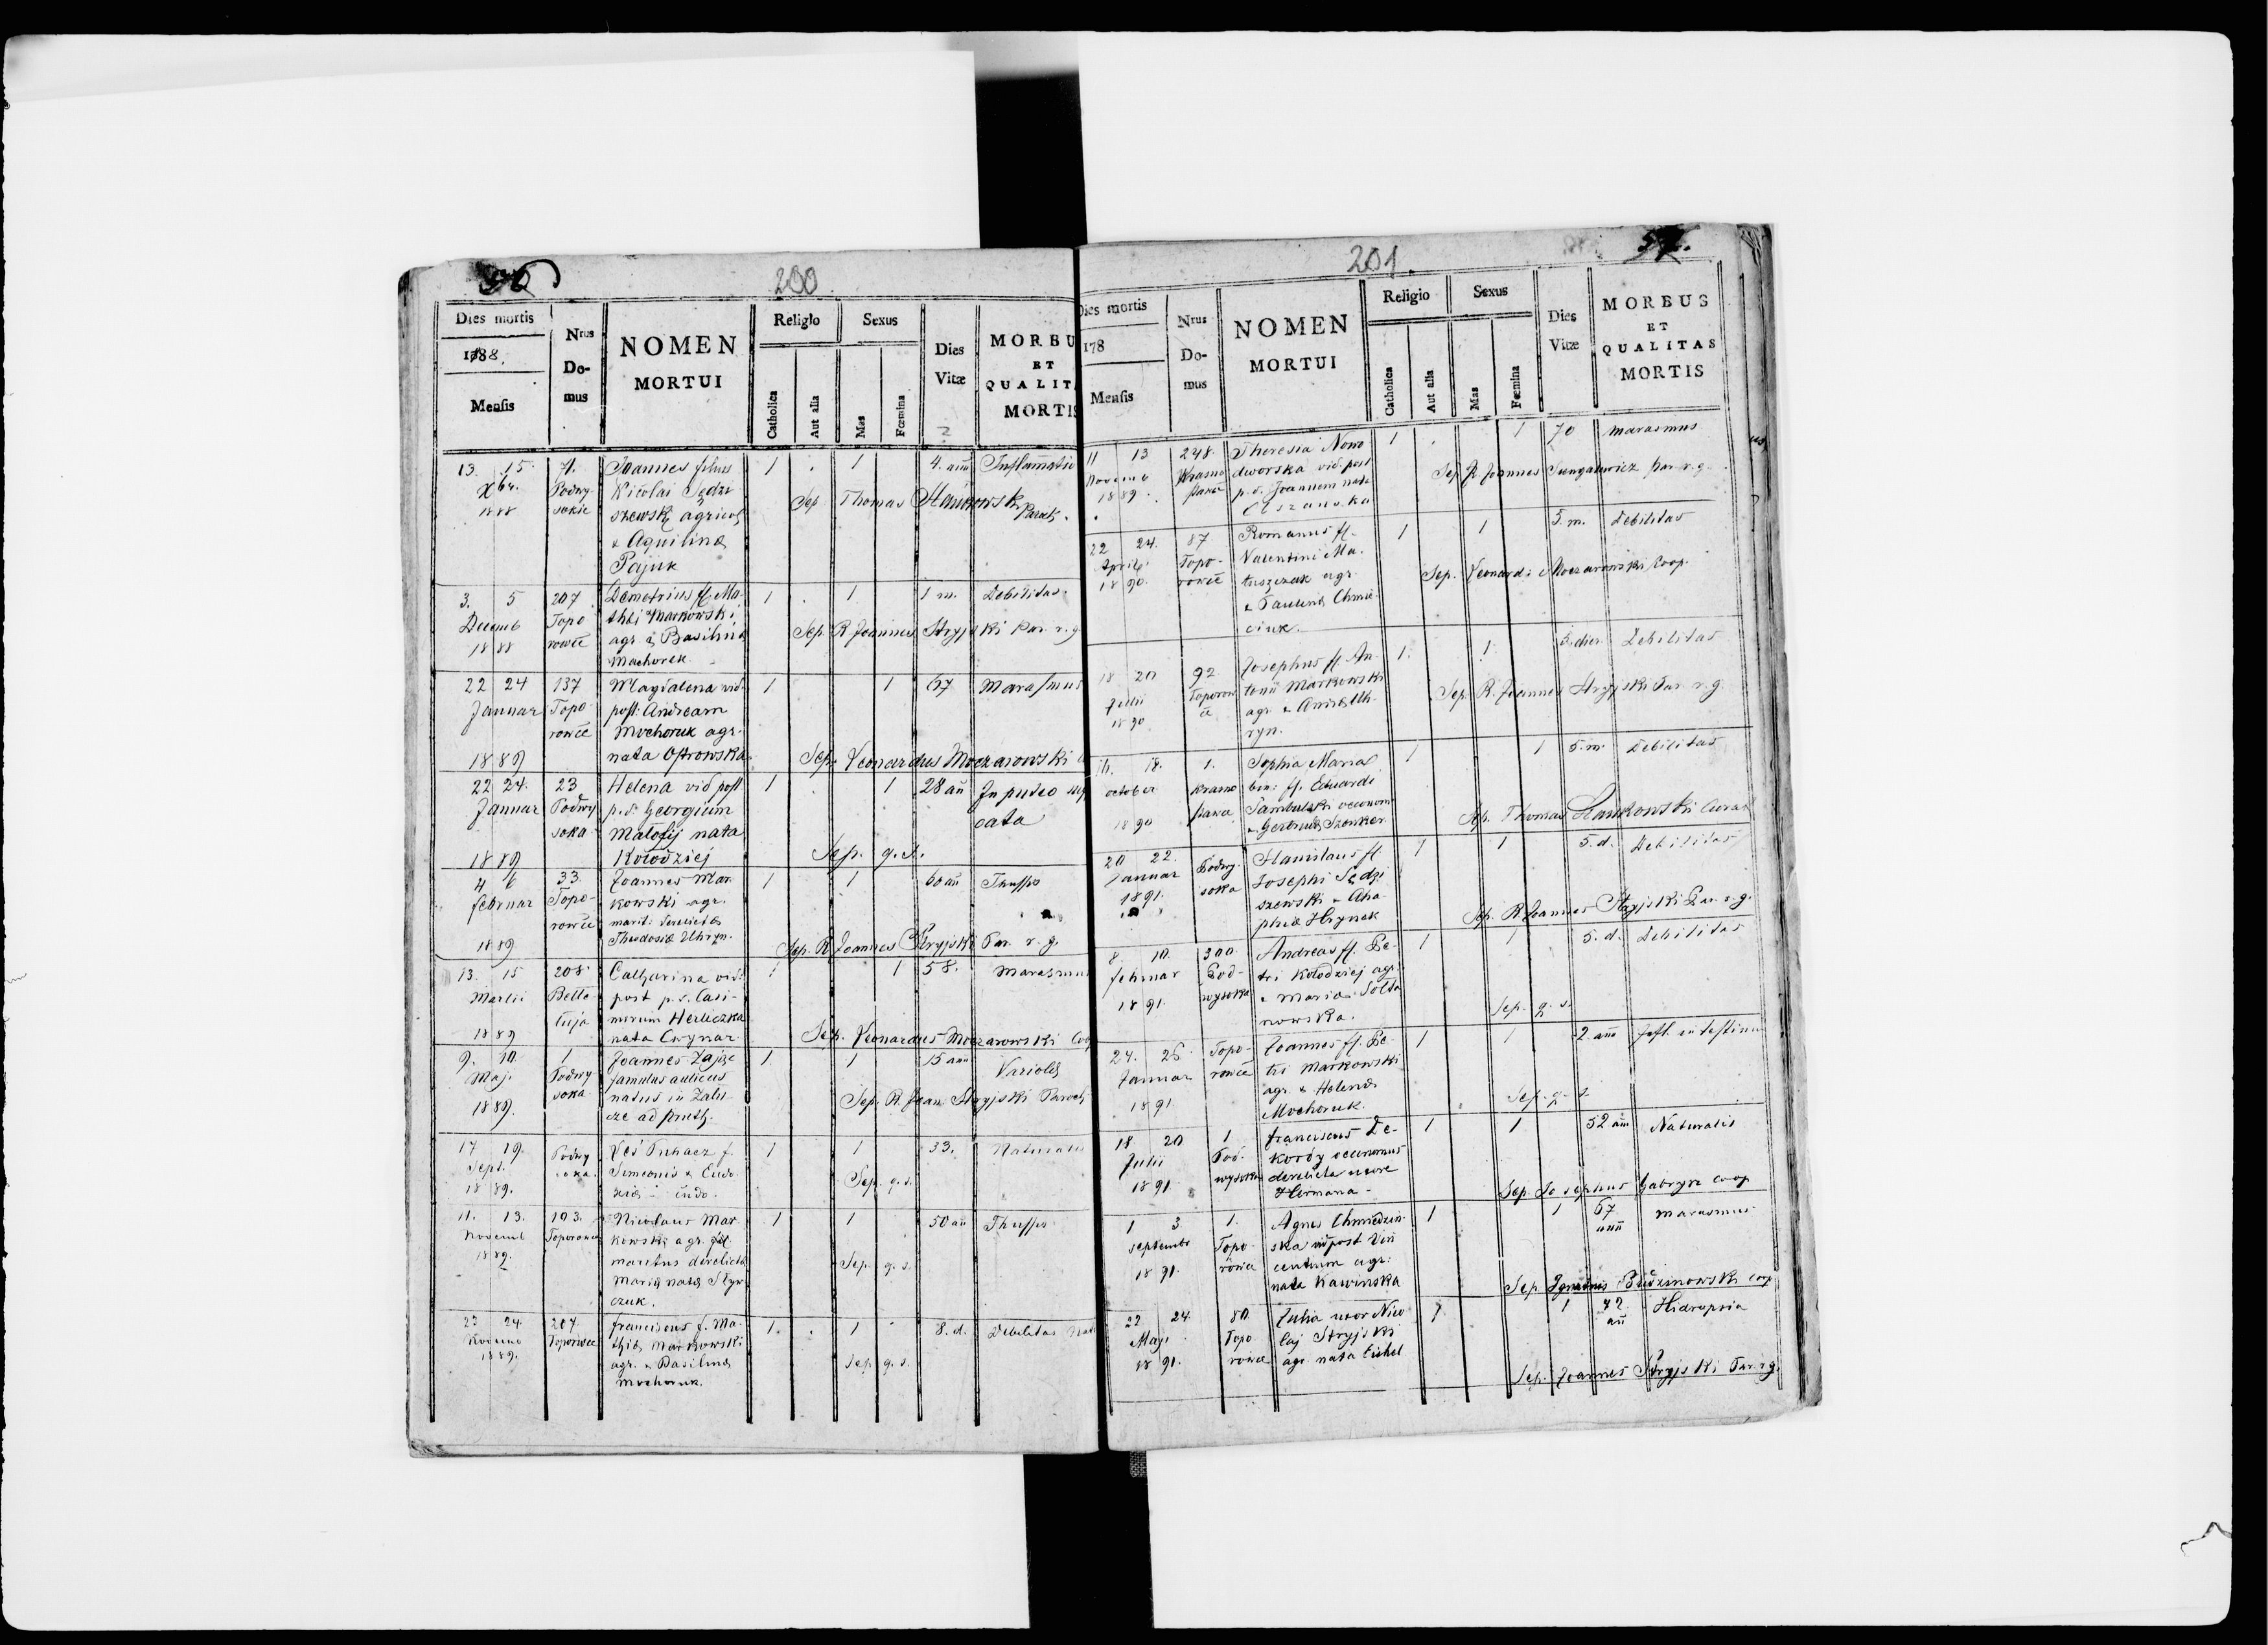 200
Dies mortis
1888.
Mensis
Nrus
Do-
mus
NOMEN
MORTUI
Religio
Catholica
Aut alia
Sexus
Mas
Fœmina
Dies
Vitæ
MORBU
ET
QUALIT
MORTIS
13. 15. Xbr. 1888
71. Podwy
sokie
Joannes filius
Nicolai Sędzi
szewski agricol
& Aquilina
Pajuk
1 . 1 4. anni Inflamatio
Sep. Thomas Stankowski
Paroch.
3. 5 Decemb 1888
207 Topo
rowce
Demetrius fl. Ma-
thei Markowski
agr. & Basilina
Mochoruk
1 . 1 1 m. Debilitas
Sep. R. Joannes Stryjski Par. r. g.
22 24 Januar 1889
137 Topo
rowce
Magdalena vid.
post. Andream
Mochoruk agr.
nata Ostrowska
1 1 67 Marasmus
Sep. Leonardus Moczarowski
22 24. Januar 1889
23 Podwy
soka
Helena vid post
p. d. Georgium
Matofij nata
Kołodziej
1 1 28 an In puteo
cata
Sep. q. s.
4 6 februar 1889
33. Topo-
rowce
Joannes Mar-
kowski agr.
marit. derelicta
Theodosia Uhryn.
1 1 60 an Thyssis
Sep. R. Joannes Stryjski Par. r. g.
13. 15 Martii 1889
208 Belle-
luja
Catharina vid.
post p. d. Casi-
mirum Herliczka
nata Cwynar
1 1 58. Marasmus
Sep. Leonardus Moczarowski Coop
9. 10. Maj. 1889.
1 Podwy
soka
Joannes Zając
famulus aulicus
natus in Zału-
cze ad Pruth.
1 1 15 ann Variola
Sep. R. Joan. Stryjski Paroch
17 19. Sept. 1889.
Podwy
soka.
Leś Puhacz f.
Simeonis & Eudo-
xia
1 1 33. Naturalis
Sep. q. s.
11. 13. Novemb 1889.
103. Toporowce
Nicolaus Mar-
kowski agr.
maritus derelicta
Maria nata Styr-
czuk.
1 1 50 an Thyssis
Sep. q. s.
22 24. Novemb 1889.
207 Toporowce
franciscus f. Ma-
thia Markowski
agr. & Basilina
Mochoruk.
1. . 1 8. d. Debilitas
Sep. q. s.
201.
Dies mortis
178
Mensis
Nrus
Do-
mus
NOMEN
MORTUI
Religio
Catholica
Aut alia
Sexus
Mas
Fœmina
Dies
Vitæ
MORBUS
ET
QUALITAS
MORTIS
11 13 Novemb 1889.
248. Krasno
stawce
Theresia Nowo
dworska vid. post
p. d. Joannem nata
Olszanska
1 . 1 70 Marasmus
Sep. R. Joannes Par. r. g.
22 24. Aprilis 1890.
87 Topo-
rowce
Romanus fl.
Valentini Ma-
tuszczak agr.
& Paulina Chmie-
ciuk.
1 1 5. m. Debilitas
Sep. Leonardi Moczarowski Coop.
18 20 Julii 1890
92 Toporow
ce
Josephus fl. An-
tonii Markowski
agr. & Anna Uh-
ryn.
1. 1. 3. dier. Debilitas
Sep. R. Joannes Stryjski Par. r. g.
16. 18. october 1890
1. Krasno
stawce
Sophia Maria
bin: fl. Eduardi
Sambulski oeconom
& Gertruda Szonker
1 1 5. m. Debilitas
Sep. Thomas Stankowski Curat
20 22. Januar 1891.
Podwy-
soka
Stanislaus fl.
Josephi Sędzi
szewski & Aha-
phia Hrynak
1 1 5. d. Debilitas
Sep. R. Joannes Stryjski Par. r. g.
8. 10. februar 1891.
300. Pod-
wysoka
Andreas fl. Pe-
tri Kołodziej agr.
& Maria Sołta
nowska.
1 1 5. d. Debilitas
Sep. q. s.
24. 26 Januar 1891
Topo-
rowce
Joannes fl. Pe-
tri Markowski
agr. & Helena
Mochoruk.
1 1 2. ann Infl. intestin
Sep. q. s.
18 20 Julii 1891
1. Pod-
wysoka
franciscus De-
kordy oeconomus
derelicta uxore
Hermana
1 1 52 ann Naturalis
Sep. Josephus Gabryś coop
1 3 Septembr 1891.
1. Topo-
rowce
Agnes Chmiedzin-
ska vid post Vin
centium agr.
nata Kawinska
1 1 67
ann Marasmus
Sep. Ignatius Budzinowski coop
22 24 Maji 1891.
80. Topo
rowce
Julia uxor Nico
laj Stryjski
agr. nata Eichel
1 1 42
an Hidropsia
Sep. Joannes Stryjski Par. r. g.